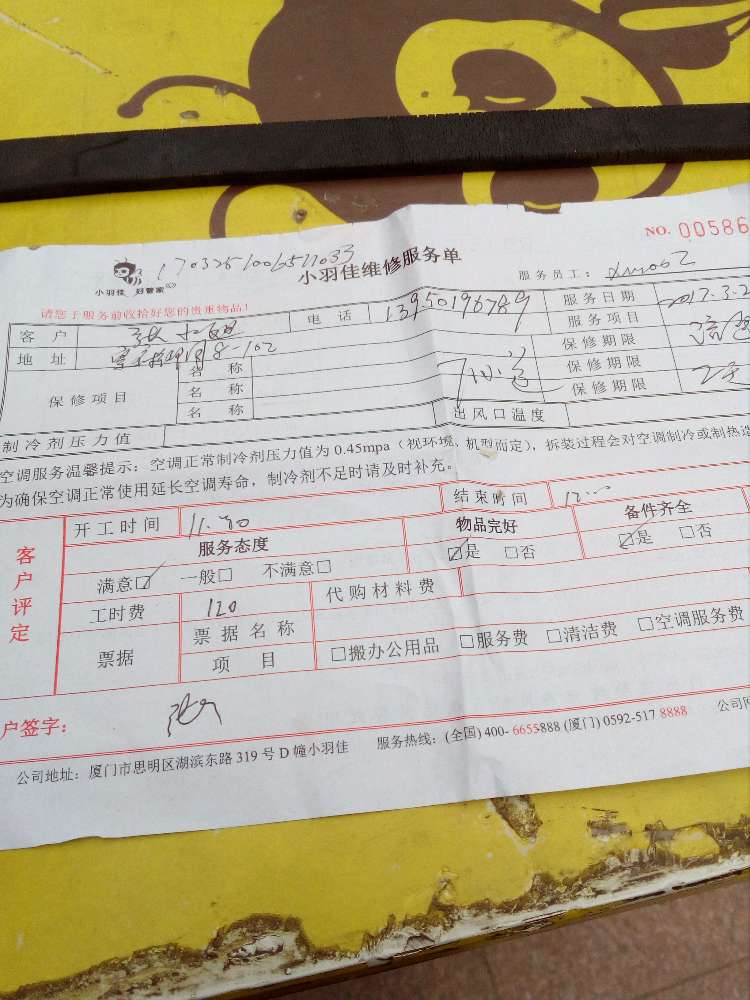 NO. 00586
小羽佳 好管家
小羽佳维修服务单
服务员工:
请您于服务前收拾好您的贵重物品!
客户 电话 13950196789 服务日期 2017.3.2
地址 8-102 服务项目
保修项目 名称 保修期限
名称 保修期限
名称 保修期限
制冷剂压力值 出风口温度
空调服务温馨提示:空调正常制冷剂压力值为 0.45mpa(视环境,机型而定),拆装过程会对空调制冷或制热造
为确保空调正常使用延长空调寿命,制冷剂不足时请及时补充。
客户评定
开工时间 结束时间
服务态度 物品完好 备件齐全
满意☑ 一般□ 不满意□ ☑是 □否 ☑是 □否
工时费 120 代购材料费
票据 票据名称
项目 □搬办公用品 □服务费 □清洁费 □空调服务费
户签字:
公司地址:厦门市思明区湖滨东路 319 号 D 幢小羽佳 服务热线:(全国)400-6655888 (厦门) 0592-517 8888 公司网